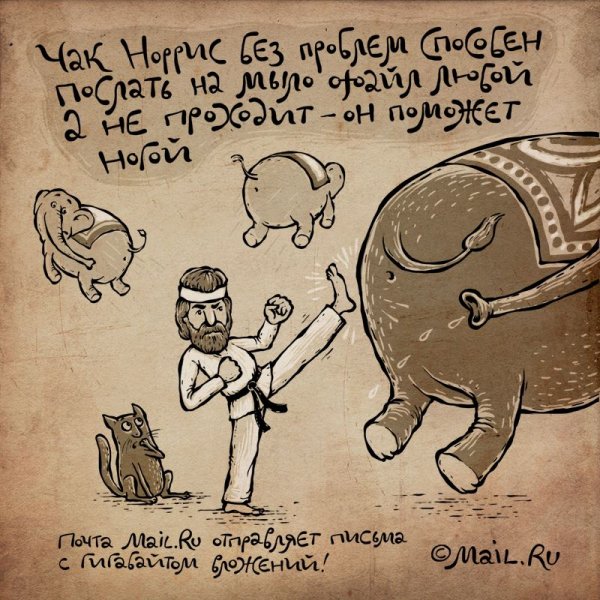 Чак Норрис без проблем способен
послать на мыло файл любой
а не проходит – он поможет
ногой
Почта Mail.Ru отправляет письма
с гигабайтом вложений!
©Mail.Ru